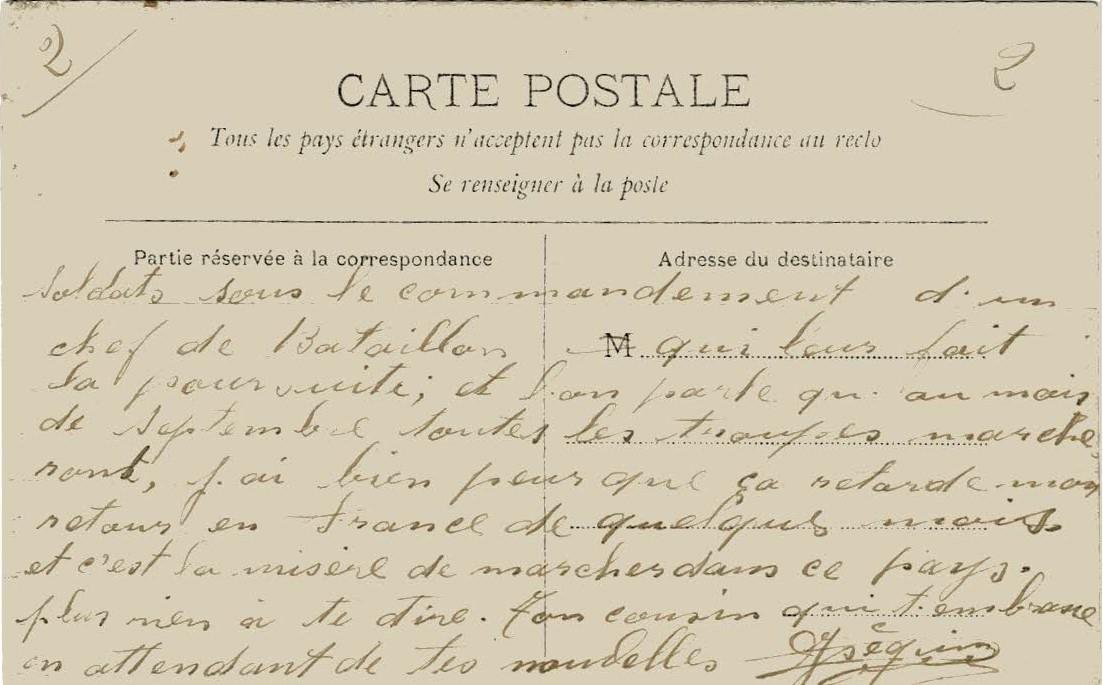 2 2
CARTE POSTALE
Tous les pays étrangers n'acceptent pas la correspondance au recto
Se renseigner à la poste
Partie réservée à la correspondance Adresse du destinataire
soldats sous le commandement d'un
chef de Bataillon M qui leur fait
la poursuite; et l'on parle qu'au mois
de septembre toutes les troupes marche
ront, j'ai bien peur que ça retarde mon
retour en France de quelques mois
et c'est la misère de marcher dans ce pays.
plus rien à te dire. Ton cousin qui t'embrasse
en attendant de tes nouvelles